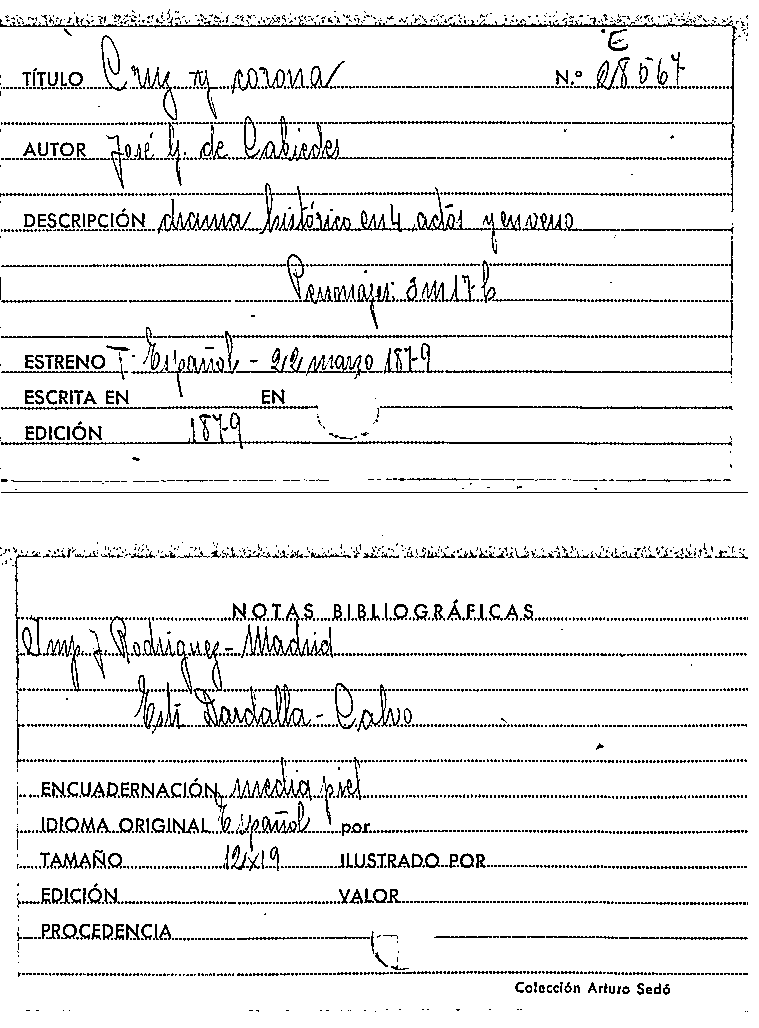 E
TÍTULO Cruz y corona N.º 28567
AUTOR José G. de Cabiedes
DESCRIPCIÓN drama histórico en 4 actos y en verso
Personajes: 3 m 17 h
ESTRENO T. Español - 22 marzo 1879
ESCRITA EN EN
EDICIÓN 1879
NOTAS BIBLIOGRÁFICAS
Imp. J. Rodriguez - Madrid
Dardalla - Calvo
ENCUADERNACIÓN media piel
IDIOMA ORIGINAL Español por
TAMAÑO 12x19 ILUSTRADO POR
EDICIÓN VALOR
PROCEDENCIA
Colección Arturo Sedó